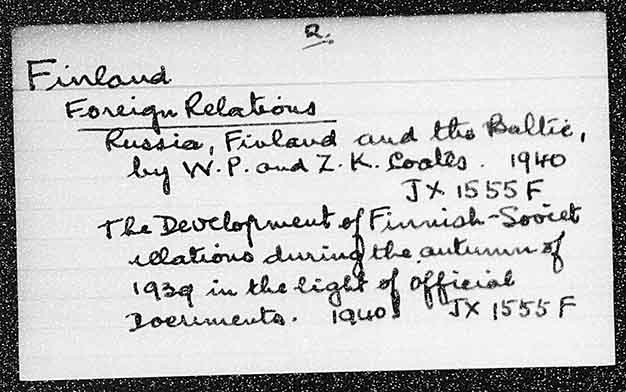 2.
Finland
Foreign Relations
Russia, Finland and the Baltic,
by W. P. and Z. K. Coates. 1940
JX 1555 F
The Development of Finnish-Soviet
relations during the autumn of
1939 in the light of official
Documents. 1940. JX 1555 F